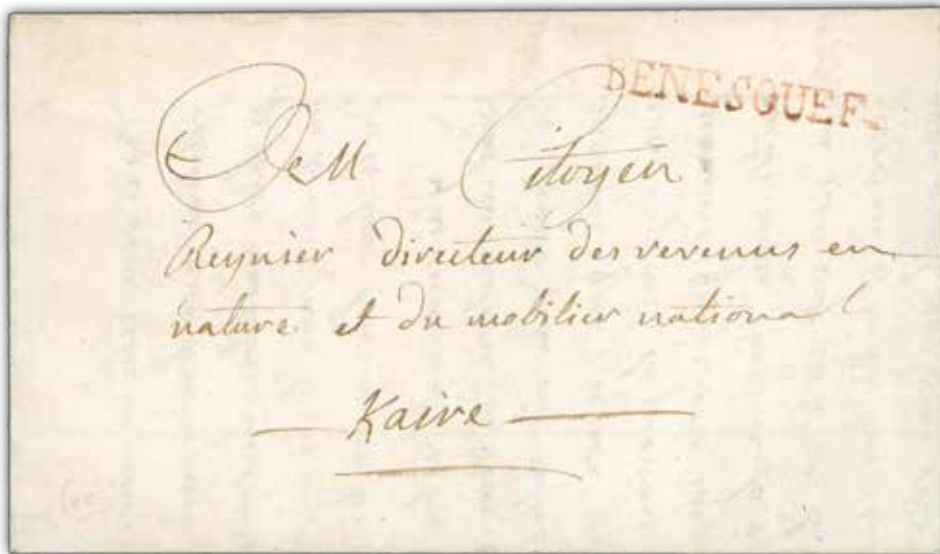 BENESOUEF
Citoyen
Reynier directeur des revenus en
nature et du mobilier national
Kaire